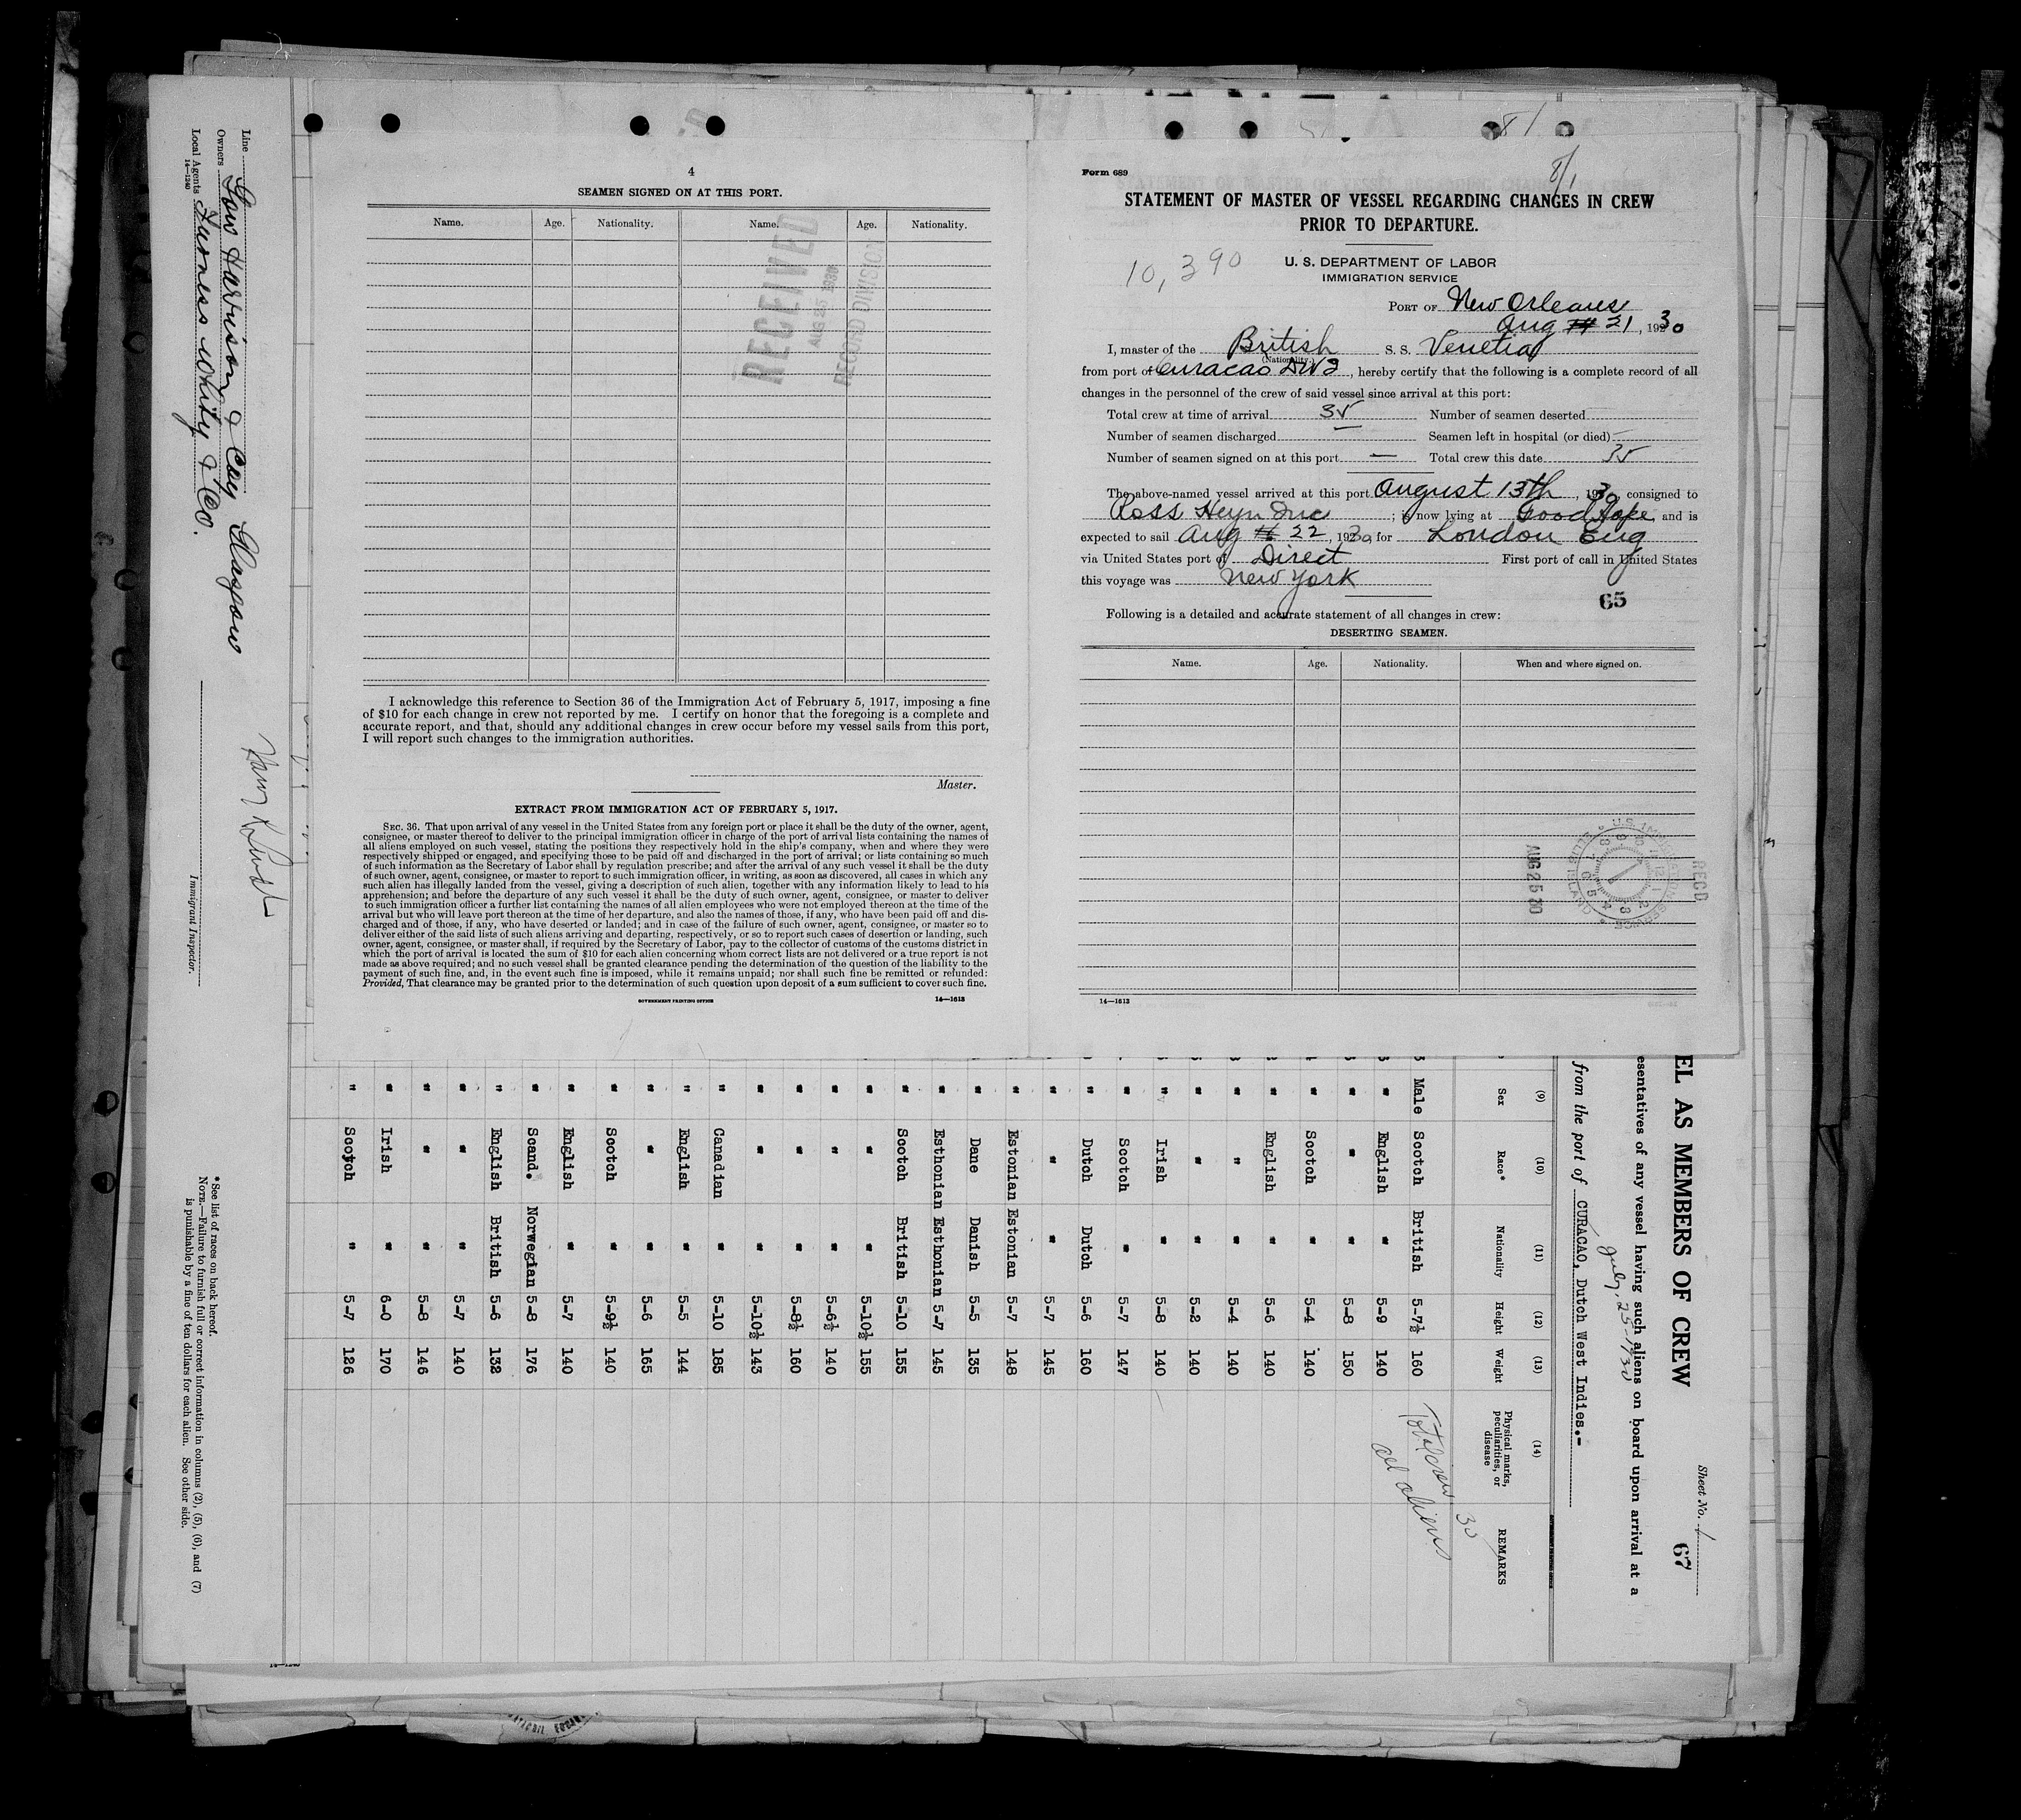 4
SEAMEN SIGNED ON AT THIS PORT.
Name. Age. Nationality. Name. Age. Nationality.
RECEIVED
AUG 25 1930
RECORD DIVISION
I acknowledge this reference to Section 36 of the Immigration Act of February 5, 1917, imposing a fine
of $10 for each change in crew not reported by me. I certify on honor that the foregoing is a complete and
accurate report, and that, should any additional changes in crew occur before my vessel sails from this port,
I will report such changes to the immigration authorities.
Master.
EXTRACT FROM IMMIGRATION ACT OF FEBRUARY 5, 1917.
SEC. 36. That upon arrival of any vessel in the United States from any foreign port or place it shall be the duty of the owner, agent,
consignee, or master thereof to deliver to the principal immigration officer in charge of the port of arrival lists containing the names of
all aliens employed on such vessel, stating the positions they respectively hold in the ship's company, when and where they were
respectively shipped or engaged, and specifying those to be paid off and discharged in the port of arrival; or lists containing so much
of such information as the Secretary of Labor shall by regulation prescribe; and after the arrival of any such vessel it shall be the duty
of such owner, agent, consignee, or master to report to such immigration officer, in writing, as soon as discovered, all cases in which any
such alien has illegally landed from the vessel, giving a description of such alien, together with any information likely to lead to his
apprehension; and before the departure of any such vessel it shall be the duty of such owner, agent, consignee, or master to deliver
to such immigration officer a further list containing the names of all alien employees who were not employed thereon at the time of the
arrival but who will leave port thereon at the time of her departure, and also the names of those, if any, who have been paid off and dis-
charged and of those, if any, who have deserted or landed; and in case of the failure of such owner, agent, consignee, or master so to
deliver either of the said lists of such aliens arriving and departing, respectively, or so to report such cases of desertion or landing, such
owner, agent, consignee, or master shall, if required by the Secretary of Labor, pay to the collector of customs of the customs district in
which the port of arrival is located the sum of $10 for each alien concerning whom correct lists are not delivered or a true report is not
made as above required; and no such vessel shall be granted clearance pending the determination of the question of the liability to the
payment of such fine, and, in the event such fine is imposed, while it remains unpaid; nor shall such fine be remitted or refunded:
Provided, That clearance may be granted prior to the determination of such question upon deposit of a sum sufficient to cover such fine.
GOVERNMENT PRINTING OFFICE 14—1613
81
8/1
Form 689
STATEMENT OF MASTER OF VESSEL REGARDING CHANGES IN CREW
PRIOR TO DEPARTURE.
10,390
U. S. DEPARTMENT OF LABOR
IMMIGRATION SERVICE
PORT OF New Orleans
Aug 21, 1930
I, master of the British S. S. Venetia
(Nationality.)
from port of Curacao DWI, hereby certify that the following is a complete record of all
changes in the personnel of the crew of said vessel since arrival at this port:
Total crew at time of arrival 35 Number of seamen deserted
Number of seamen discharged — Seamen left in hospital (or died) —
Number of seamen signed on at this port — Total crew this date 35
The above-named vessel arrived at this port August 13th, 1930, consigned to
Ross Heyn Inc; is now lying at Good Hope and is
expected to sail Aug 22, 1930 for London Eng
via United States port of Direct First port of call in United States
this voyage was New York
65
Following is a detailed and accurate statement of all changes in crew:
DESERTING SEAMEN.
Name. Age. Nationality. When and where signed on.
RECD
U.S. IMMIGRATION SERVICE ELLIS ISLAND
AUG 25 30
14—1613
Sheet No. 1
67
EL AS MEMBERS OF CREW
esentatives of any vessel having such aliens on board upon arrival at a
July, 25-1930
from the port of CURACAO, Dutch West Indies.-
(9) (10) (11) (12) (13) (14)
Sex Race* Nationality Height Weight Physical marks, peculiarities, or disease REMARKS
Total crew 30
all aliens
Male Scotch British 5-7½ 160
" English " 5-9 140
" " " 5-8 150
" Scotch " 5-4 140
" English " 5-6 140
" " " 5-4 140
" " " 5-2 140
" Irish " 5-8 140
" Scotch " 5-7 147
" Dutch Dutch 5-6 160
" " " 5-7 145
" Estonian Estonian 5-7 148
" Dane Danish 5-5 135
" Esthonian Esthonian 5-7 145
" Scotch British 5-10 155
" " " 5-10½ 155
" " " 5-6½ 140
" " " 5-8½ 160
" " " 5-10½ 143
" Canadian " 5-10 185
" English " 5-5 144
" " " 5-6 165
" Scotch " 5-9½ 140
" English " 5-7 140
" Scand. Norwegian 5-8 176
" English British 5-6 132
" " " 5-7 140
" " " 5-8 146
" Irish " 6-0 170
" Scotch " 5-7 126
Line
Owners Gow Harrison & Coy Glasgow
Local Agents Furness Whity & Co.
14—1240
Immigrant Inspector.
*See list of races on back hereof.
NOTE.—Failure to furnish full or correct information in columns (2), (5), (6), and (7)
is punishable by a fine of ten dollars for each alien. See other side.